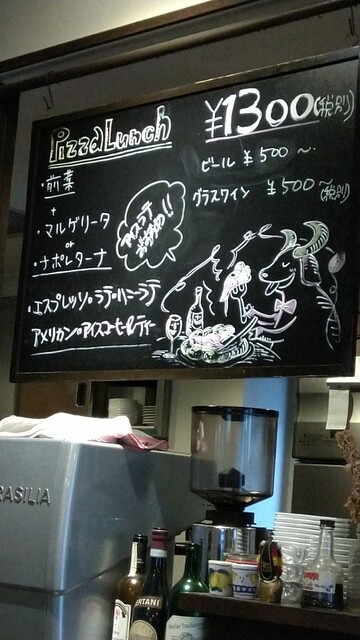 Pizza Lunch
¥1300(税別)
ビール ¥500〜
グラスワイン ¥500〜(税別)
・前菜
+
・マルゲリータ
or
・ナポレターナ
アイスラテ
始めました!!
・エスプレッソ・ラテ・ハニーラテ
アメリカン・アイスコーヒー・ティー
RASILIA
BERTANI